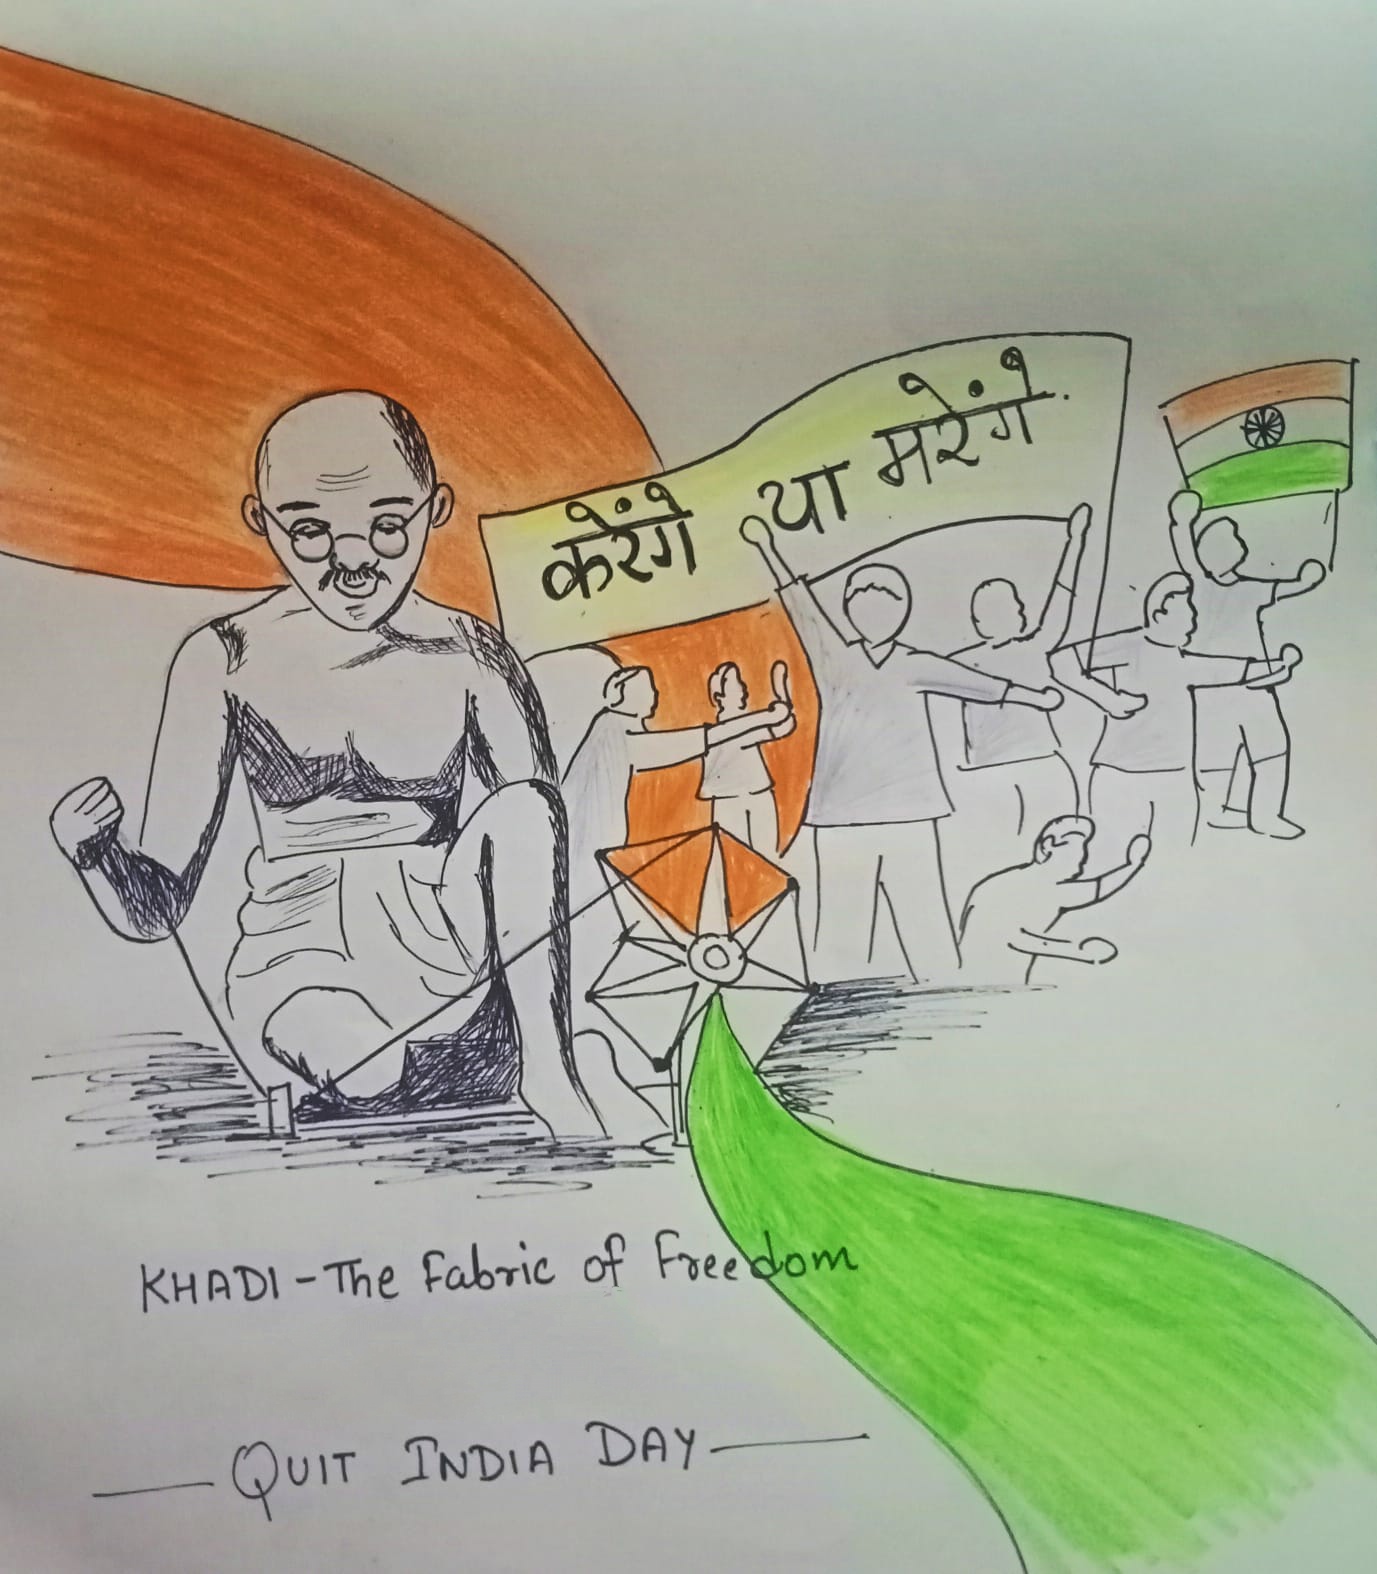 करेंगे या मरेंगे
KHADI - The Fabric of Freedom
QUIT INDIA DAY